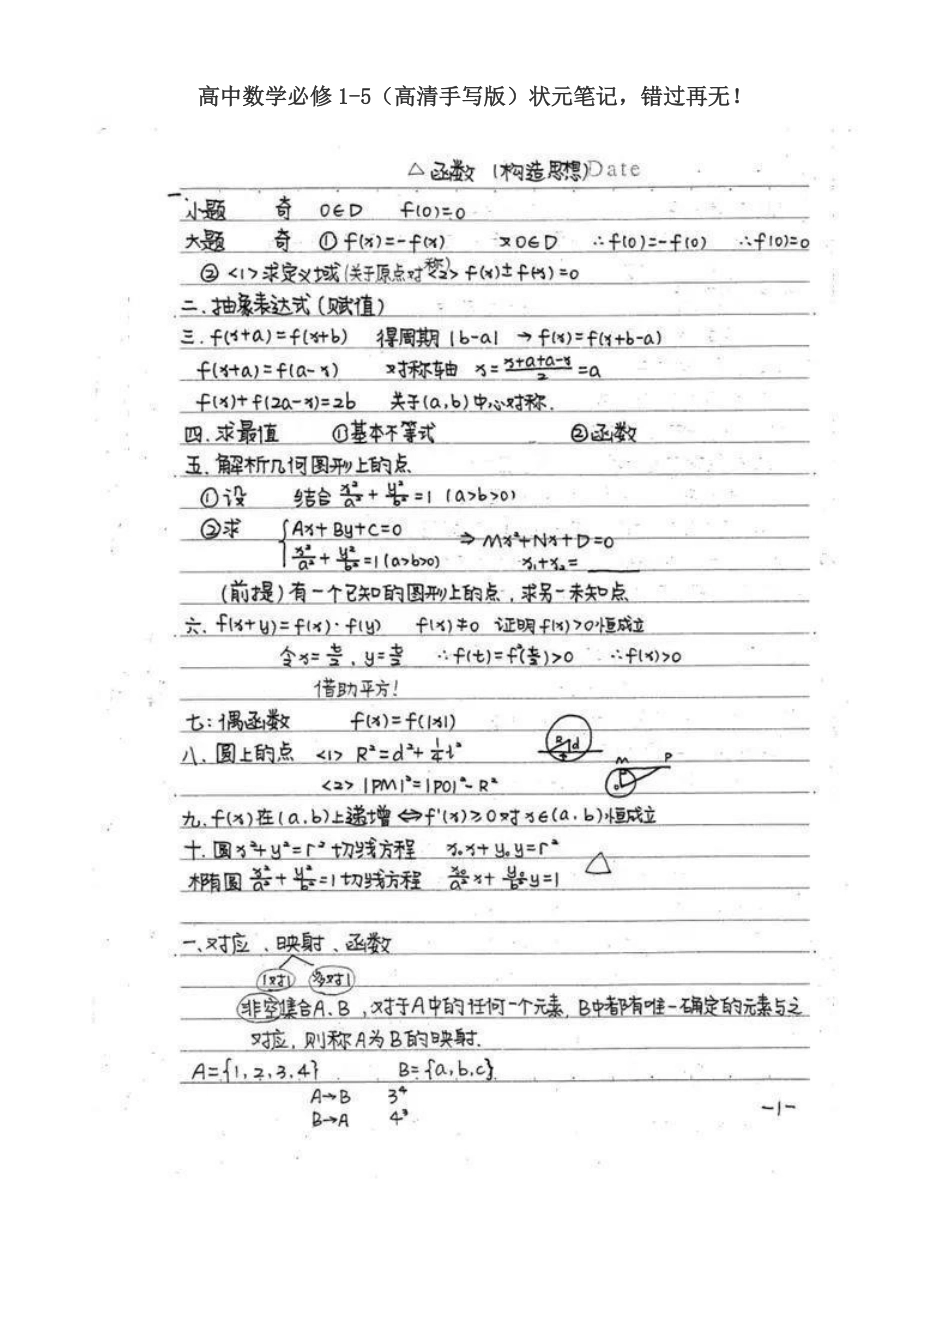 高中数学必修1-5（高清手写版）状元笔记，错过再无！
△函数（构造思想）Date
一.小题 奇 0∈D f(0)=0
大题 奇 ①f(x)=-f(x) 又0∈D ∴f(0)=-f(0) ∴f(0)=0
②<1>求定义域(关于原点对称)<2>f(x)±f(-x)=0
二.抽象表达式(赋值)
三.f(x+a)=f(x+b) 得周期|b-a| →f(x)=f(x+b-a)
f(x+a)=f(a-x) 对称轴 x=\frac{x+a+a-x}{2}=a
f(x)+f(2a-x)=2b 关于(a,b)中心对称.
四.求最值 ①基本不等式 ②函数
五.解析几何图形上的点
①设 结合 \frac{x²}{a²}+\frac{y²}{b²}=1 (a>b>0)
②求 {Ax+By+C=0 ⇒Mx²+Nx+D=0
\frac{x²}{a²}+\frac{y²}{b²}=1(a>b>0) x₁+x₂=____
(前提)有一个已知的图形上的点,求另一未知点
六.f(x+y)=f(x)·f(y) f(x)≠0 证明f(x)>0恒成立
令x=\frac{t}{2},y=\frac{t}{2} ∴f(t)=f²(\frac{t}{2})>0 ∴f(x)>0
借助平方!
七:偶函数 f(x)=f(|x|)
八.圆上的点 <1> R²=d²+\frac{1}{4}l² R d
<2> |PM|²=|PO|²-R² M P O
九.f(x)在(a.b)上递增⇔f'(x)≥0对x∈(a.b)恒成立
十.圆x²+y²=r²切线方程 x₀x+y₀y=r²
椭圆\frac{x²}{a²}+\frac{y²}{b²}=1切线方程 \frac{x₀}{a²}x+\frac{y₀}{b²}y=1
一、对应、映射、函数
1对1 多对1
非空集合A.B,对于A中的任何一个元素,B中都有唯一确定的元素与之
对应,则称A为B的映射.
A={1,2,3,4} B={a,b,c}
A→B 3⁴
B→A 4³
-1-